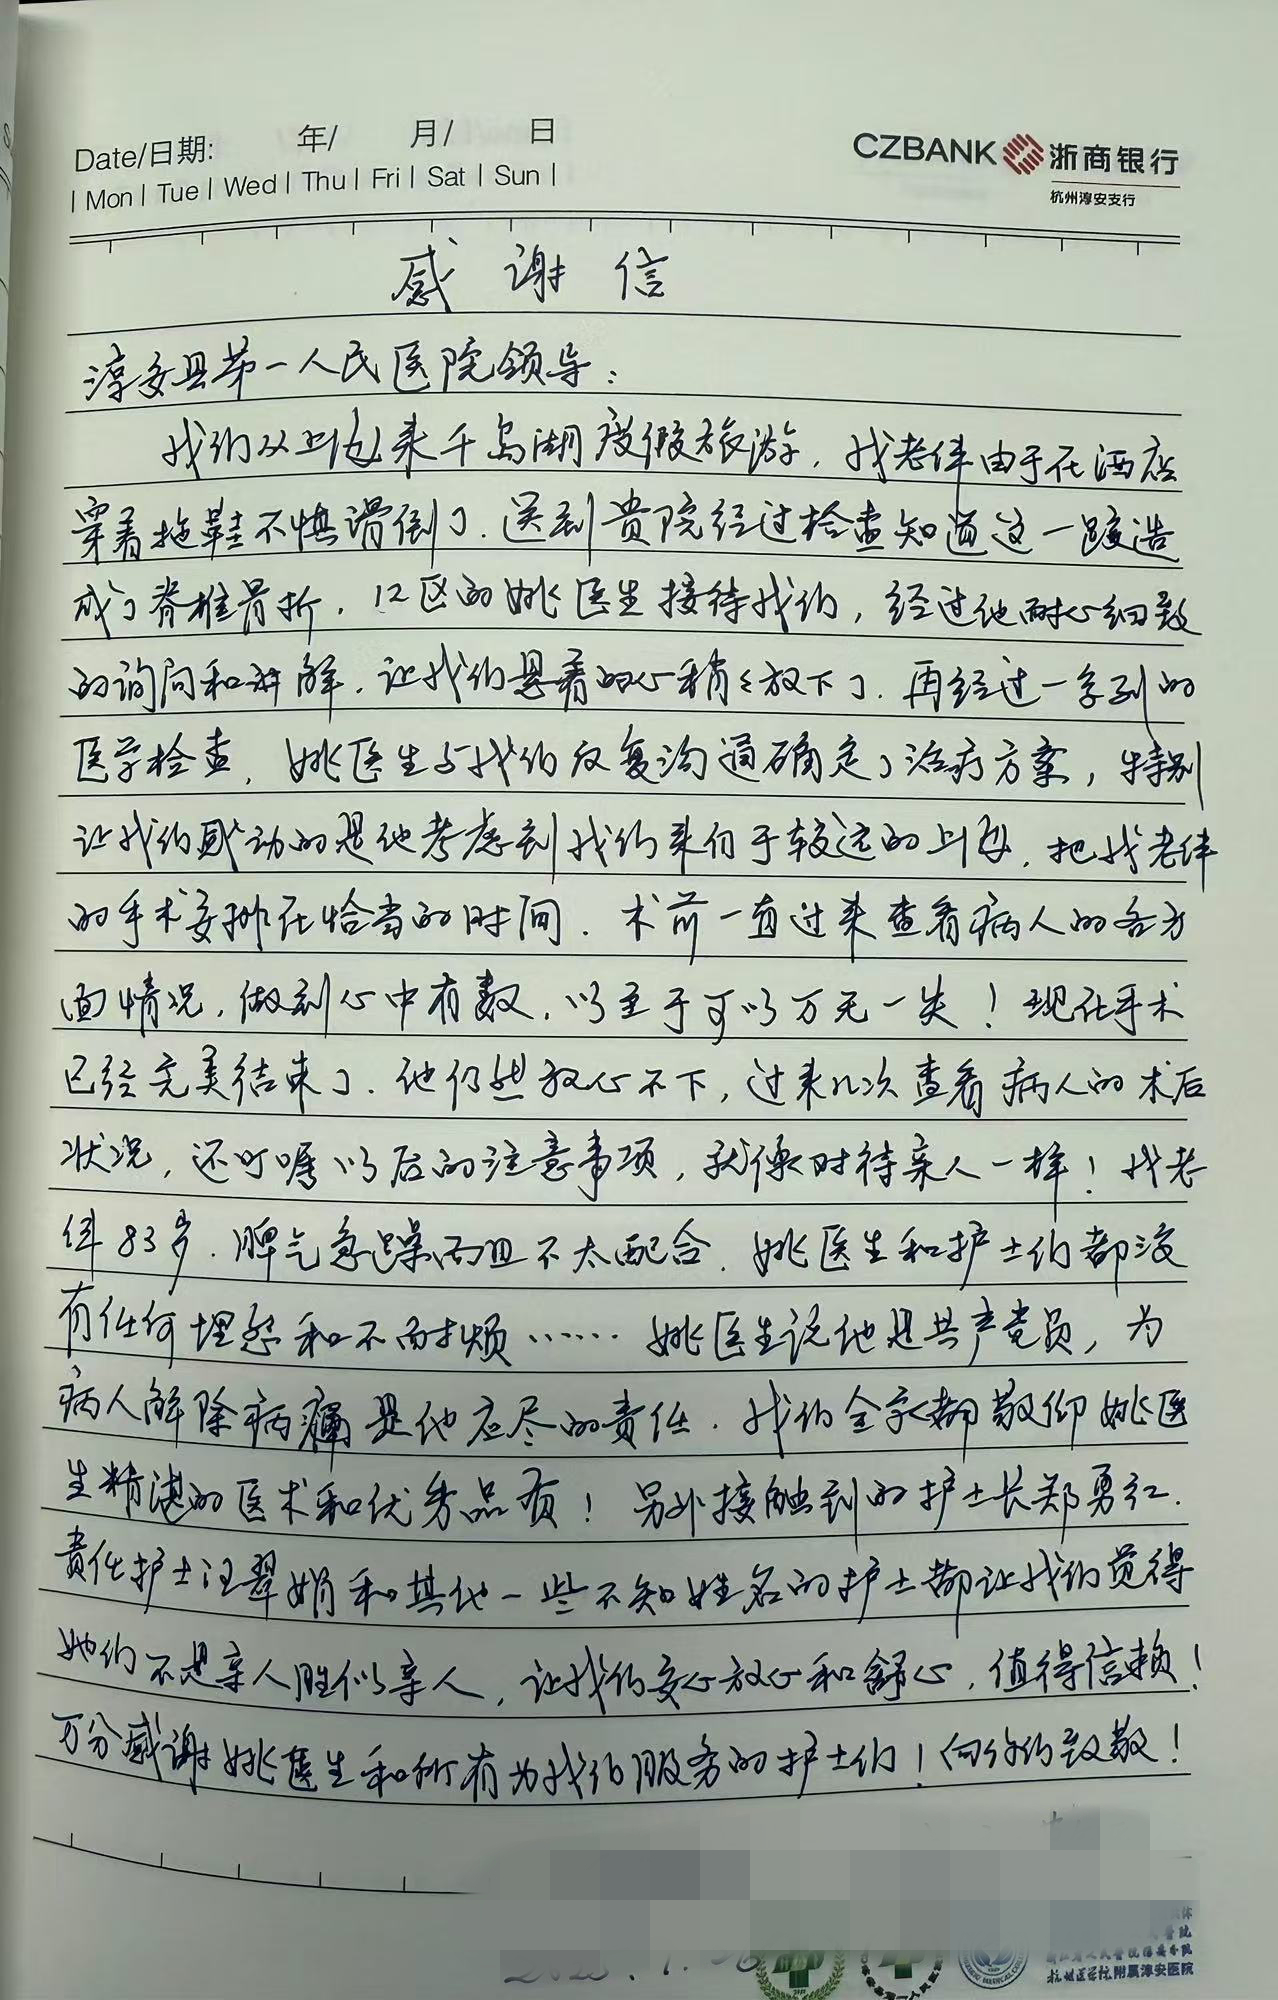 Date/日期: 年/ 月/ 日
CZBANK 浙商银行
杭州淳安支行
| Mon | Tue | Wed | Thu | Fri | Sat | Sun |
感谢信
淳安县第一人民医院领导：
我们从上海来千岛湖度假旅游，我老伴由于在酒店
穿着拖鞋不慎滑倒了．送到贵院经过检查知道这一跤造
成了脊椎骨折．12区的姚医生接待我们，经过他耐心细致
的询问和讲解．让我们悬着的心稍稍放下了．再经过一系列的
医学检查，姚医生与我们反复沟通确定了治疗方案，特别
让我们感动的是他考虑到我们来自于较远的上海，把我老伴
的手术安排在恰当的时间．术前一直过来查看病人的各方
面情况，做到心中有数，以至于可以万无一失！现在手术
已经完美结束了．他仍然放心不下，过来几次查看病人的术后
状况，还叮嘱以后的注意事项，就像对待亲人一样！我老
伴83岁．脾气急躁而且不太配合．姚医生和护士们都没
有任何埋怨和不耐烦……姚医生说他是共产党员，为
病人解除病痛是他应尽的责任．我们全家都敬仰姚医
生精湛的医术和优秀品质！另外接触到的护士长郑勇红．
责任护士汪翠娟和其他一些不知姓名的护士都让我们觉得
她们不是亲人胜似亲人，让我们安心放心和舒心，值得信赖！
万分感谢姚医生和所有为我们服务的护士们！向你们致敬！
杭州医学院附属淳安医院